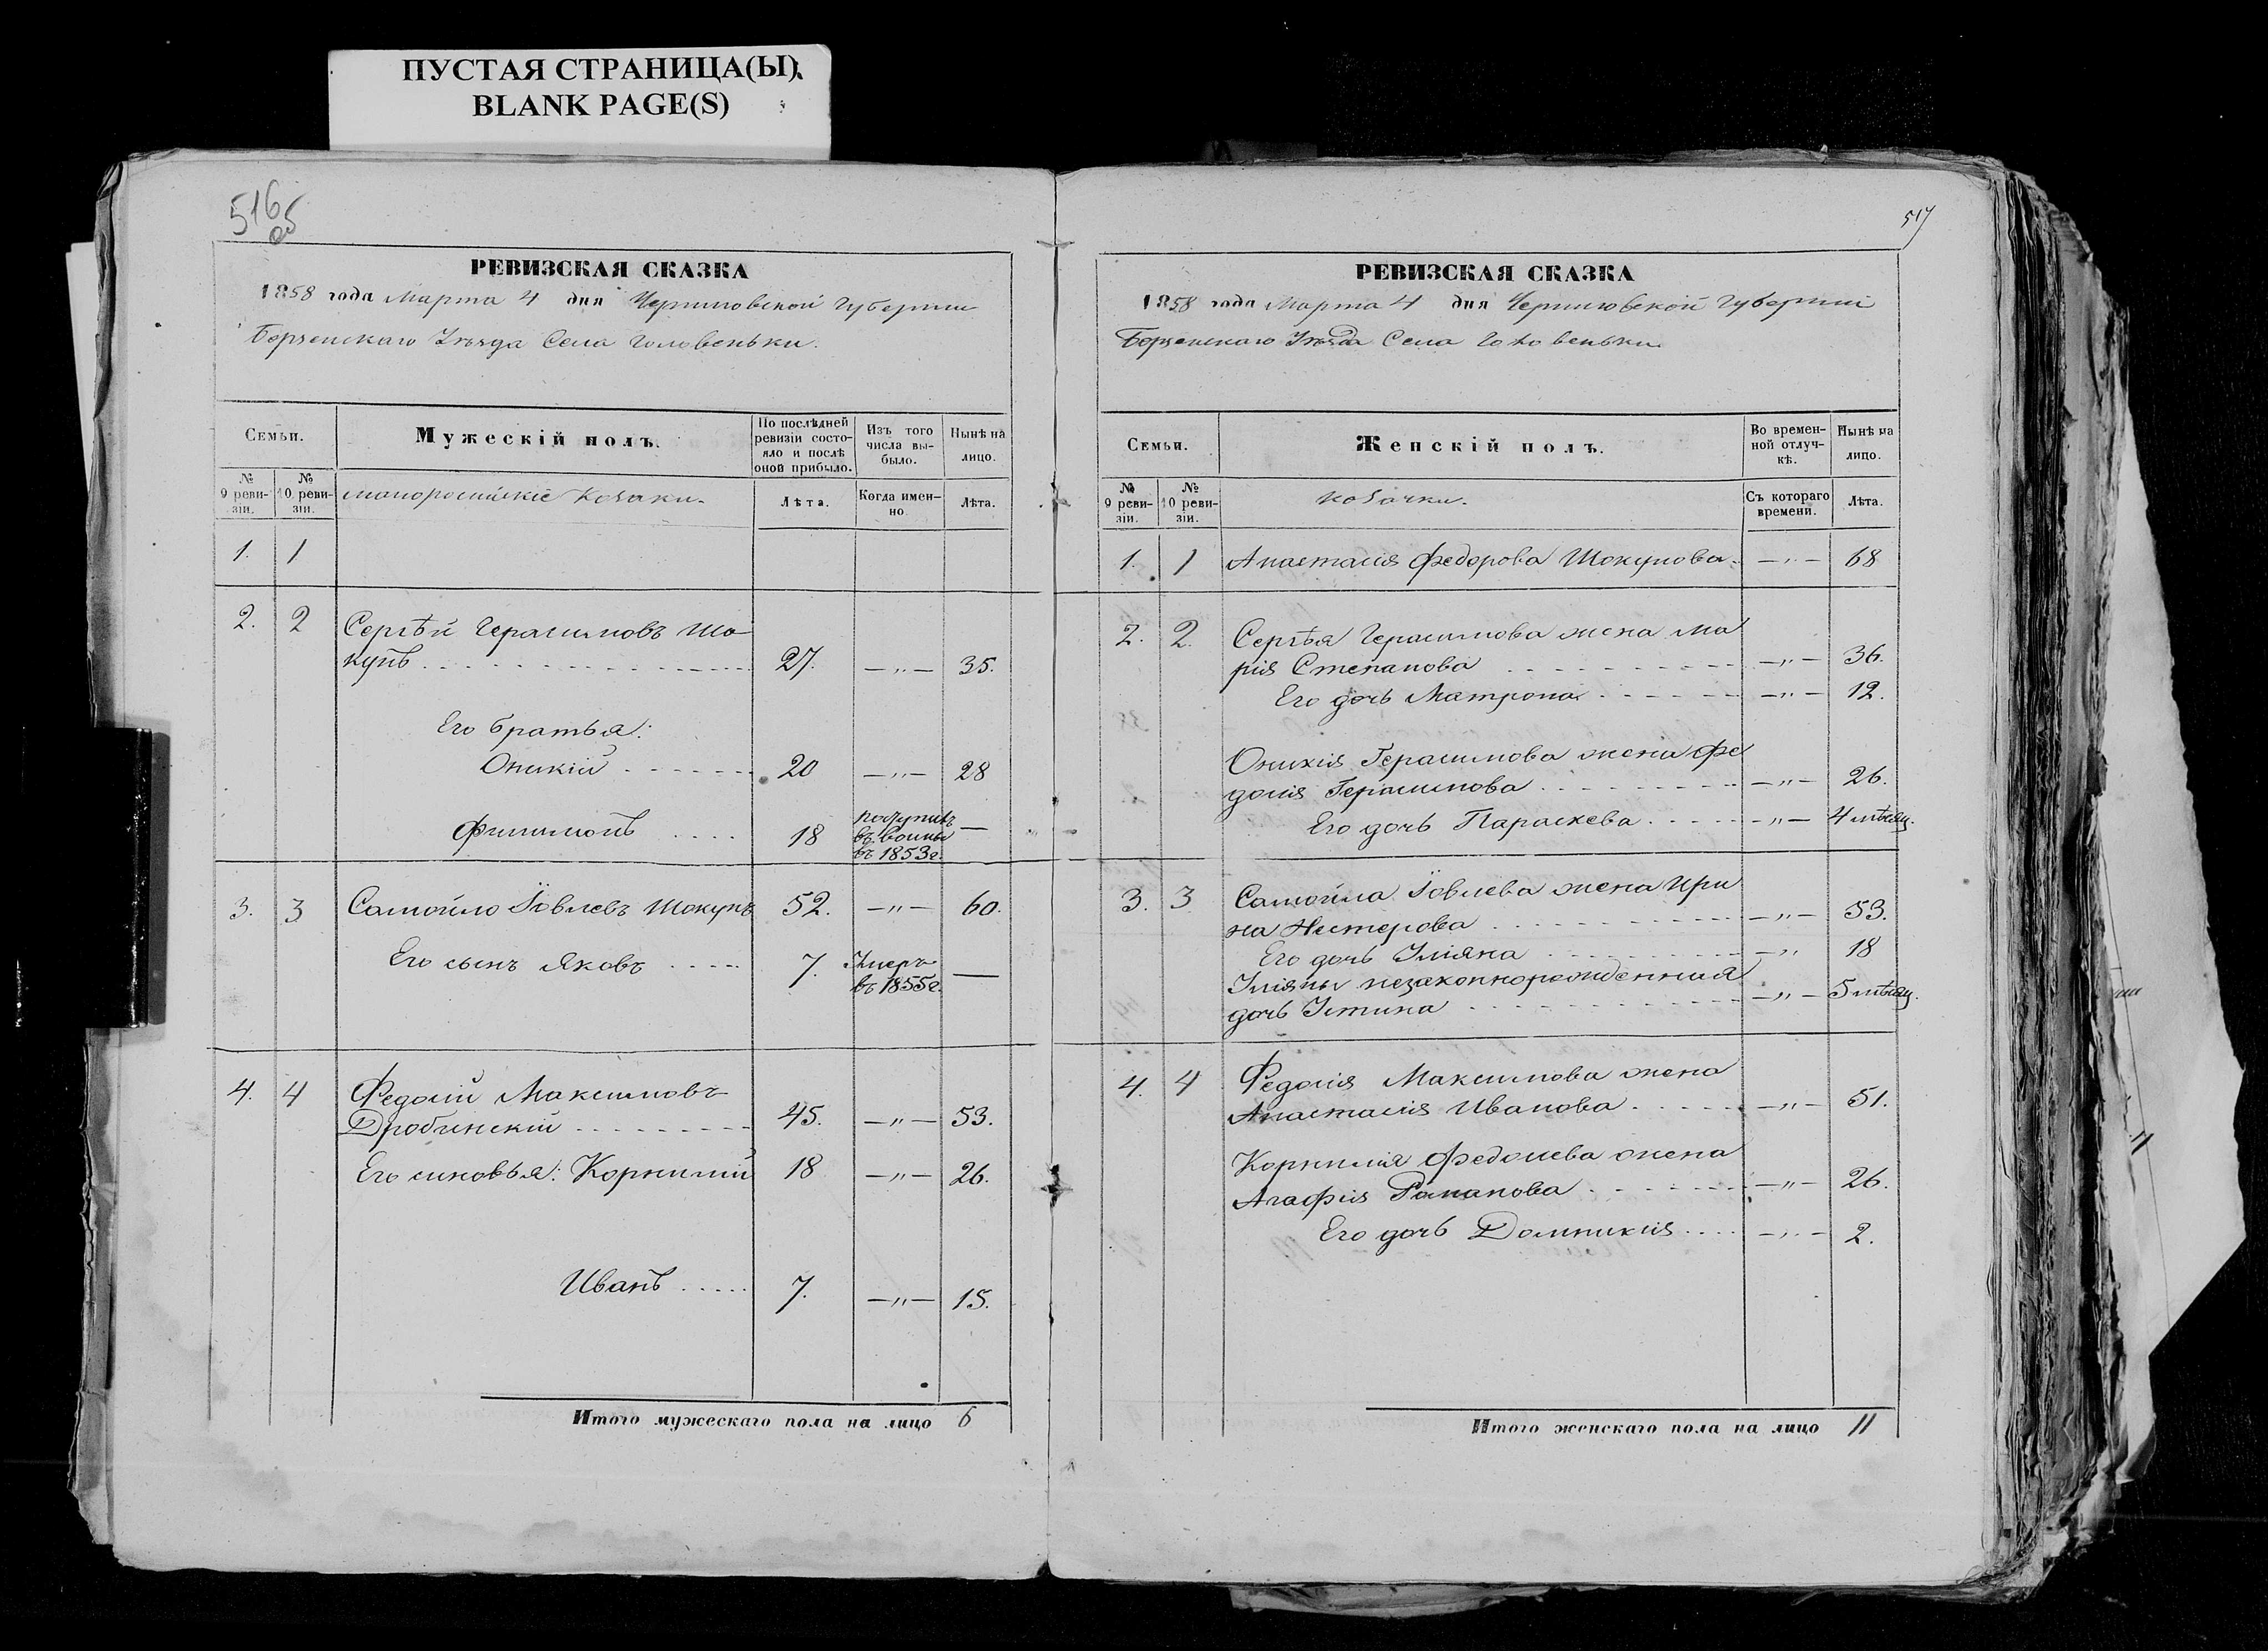 ПУСТАЯ СТРАНИЦА(Ы)
BLANK PAGE(S)
516
об
РЕВИЗСКАЯ СКАЗКА
1858 года Марта 4 дня Черниговской Губернии
Борзенскаго Уѣзда Села Головеньки.
Семьи.
Мужескій полъ.
По послѣдней ревизіи состояло и послѣ оной прибыло.
Изъ того числа выбыло.
Нынѣ на лицо.
№ 9 ревизіи.
№ 10 ревизіи.
малоросийскіе козаки.
Лѣта.
Когда именно
Лѣта.
1. 1
2. 2 Сергѣй Герасимовъ Шо
купъ 27. —"— 35.
Его братья:
Оникій 20 —"— 28
Филимонъ 18
въ 1853г. —
3. 3 Самойло Іовлевъ Шокупъ 52. —"— 60.
Его сынъ Яковъ 7. Умеръ
въ 1855г. —
4. 4 Федосій Максимовъ
Дробинскій 45. —"— 53.
Его синовья: Корнилій 18 —"— 26.
Иванъ 7. —"— 15.
Итого мужескаго пола на лицо 6
517
РЕВИЗСКАЯ СКАЗКА
1858 года Марта 4 дня Черниговской Губерніи
Борзенскаго Уѣзда Села Головеньки.
Семьи.
Женскій полъ.
Во временной отлучкѣ.
Нынѣ на лицо.
№ 9 ревизіи.
№ 10 ревизіи.
козачки.
Съ котораго времени.
Лѣта.
1. 1 Анастасія Федорова Шокупова —"— 68
2. 2. Сергѣя Герасимова жена Ма
рія Степанова —"— 36.
Его дочь Матрона —"— 12.
Оникія Герасимова жена Фе
досія Герасимова —"— 26.
Его дочь Параскева —"— 4 мѣсяц.
3. 3 Самойла Іовлева жена Ири
на Нестерова —"— 53.
Его дочь Уліяна —"— 18
Уліяны незаконнорожденная
дочь Устина —"— 5 мѣсяц.
4. 4 Федосія Максимова жена
Анастасія Иванова —"— 51.
Корнилія Федосиева жена
Агафія Романова —"— 26.
Его дочь Домникія —"— 2.
Итого женскаго пола на лицо 11